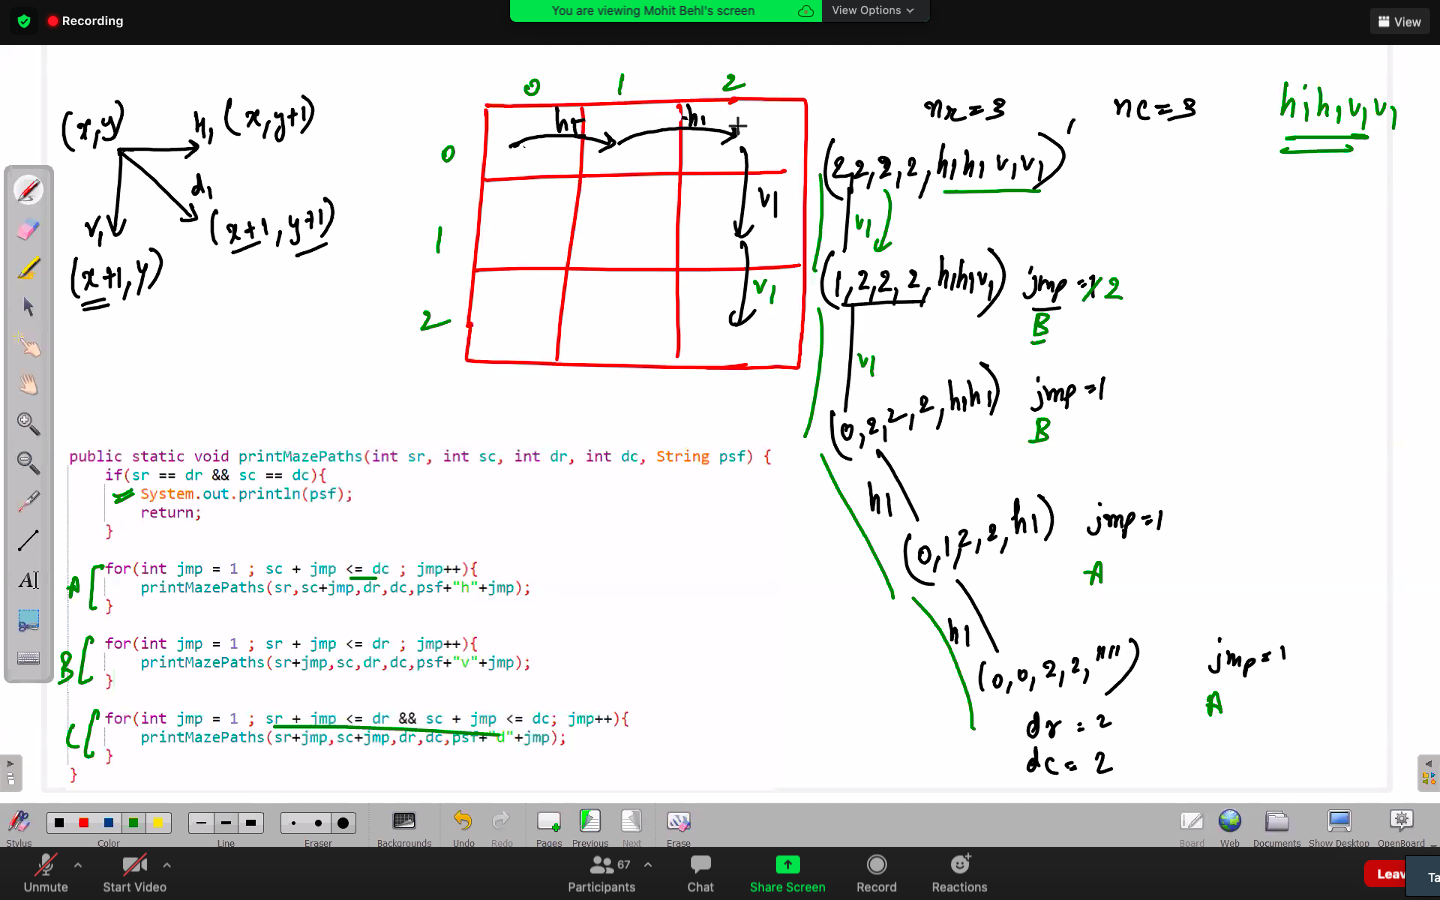 Recording
You are viewing Mohit Behl's screen
View Options
View
0 1 2
nr=3 nc=3
h1h1v1v1
(x,y) h1 (x,y+1)
h1 h1
0
(2,2,2,2,h1h1v1v1)
d1
v1 (x+1,y+1)
v1
v1
1
(x+1,y)
v1
(1,2,2,2,h1h1v1) jmp=1 2
B
2
v1
(0,2,2,2,h1h1) jmp=1
B
h1
(0,1,2,2,h1) jmp=1
A
h1
(0,0,2,2,"") jmp=1
A
dr=2
dc=2
public static void printMazePaths(int sr, int sc, int dr, int dc, String psf) {
if(sr == dr && sc == dc){
System.out.println(psf);
return;
}
A
for(int jmp = 1 ; sc + jmp <= dc ; jmp++){
printMazePaths(sr,sc+jmp,dr,dc,psf+"h"+jmp);
}
B
for(int jmp = 1 ; sr + jmp <= dr ; jmp++){
printMazePaths(sr+jmp,sc,dr,dc,psf+"v"+jmp);
}
C
for(int jmp = 1 ; sr + jmp <= dr && sc + jmp <= dc; jmp++){
printMazePaths(sr+jmp,sc+jmp,dr,dc,psf+"d"+jmp);
}
}
Stylus Color Line Eraser Backgrounds Undo Redo Pages Previous Next Erase Board Web Documents Show Desktop OpenBoard
67
Unmute Start Video Participants Chat Share Screen Record Reactions Leav
Ta